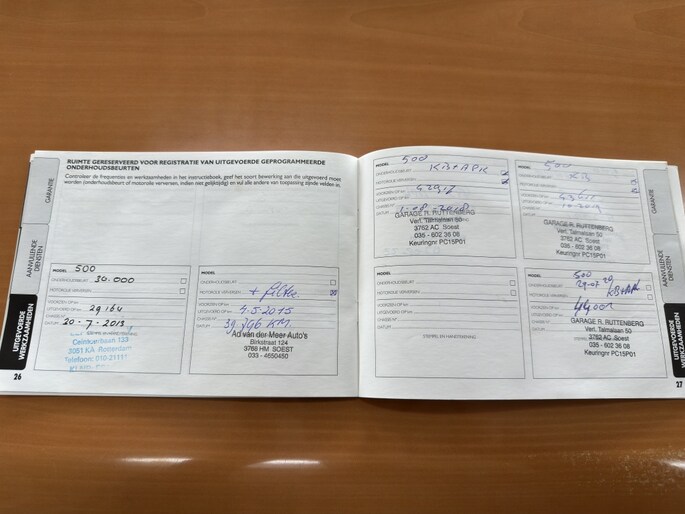 RUIMTE GERESERVEERD VOOR REGISTRATIE VAN UITGEVOERDE GEPROGRAMMEERDE
ONDERHOUDSBEURTEN
Controleer de frequenties en werkzaamheden in het instructieboek, geef het soort bewerking aan die uitgevoerd moet
worden (onderhoudsbeurt of motorolie verversen, indien niet gelijktijdig) en vul alle andere van toepassing zijnde velden in.
GARANTIE
AANVULLENDE
DIENSTEN
UITGEVOERDE
WERKZAAMHEDEN
26
MODEL 500
ONDERHOUDSBEURT 30.000
MOTOROLIE VERVERSEN
VOORZIEN OP km
UITGEVOERD OP km 29164
DATUM 20-7-2013
3051 KA Rotterdam
MODEL
ONDERHOUDSBEURT
MOTOROLIE VERVERSEN + filter
VOORZIEN OP km
UITGEVOERD OP km 4.5.2015
DATUM 39.346 KM.
Ad van der Meer Auto's
Birkstraat 124
3768 HM SOEST
033 - 4650450
MODEL 500
ONDERHOUDSBEURT KB+APK
MOTOROLIE VERVERSEN
VOORZIEN OP km
UITGEVOERD OP km
GARAGE R. RUTTENBERG
Verl. Talmalaan 50
3762 AC Soest
035 - 602 36 08
Keuringnr PC15P01
MODEL 500
GARAGE R. RUTTENBERG
Verl. Talmalaan 50
3762 AC Soest
035 - 602 36 08
Keuringnr PC15P01
MODEL
ONDERHOUDSBEURT
MOTOROLIE VERVERSEN
VOORZIEN OP km
UITGEVOERD OP km
DATUM
STEMPEL EN HANDTEKENING
MODEL 500
29-07-20
KB+APK
GARAGE R. RUTTENBERG
Verl. Talmalaan 50
3762 AC Soest
035 - 602 36 08
Keuringnr PC15P01
GARANTIE
AANVULLENDE
DIENSTEN
UITGEVOERDE
WERKZAAMHEDEN
27